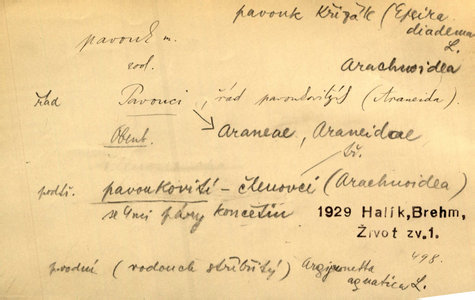 pavouk křižák (Epeira
diadema
L.
pavouk m.
zool.
Arachnoidea
řád Pavouci, řád pavoukovitých (Araneida).
Obenb. Araneae, Araneidae
tř.
podtř. pavoukovití – členovci (Arachnoidea)
se 4mi páry končetin
1929 Halík, Brehm,
Život zv.1.
498.
vodouch stříbřitý) Argyronetta
aquatica L.